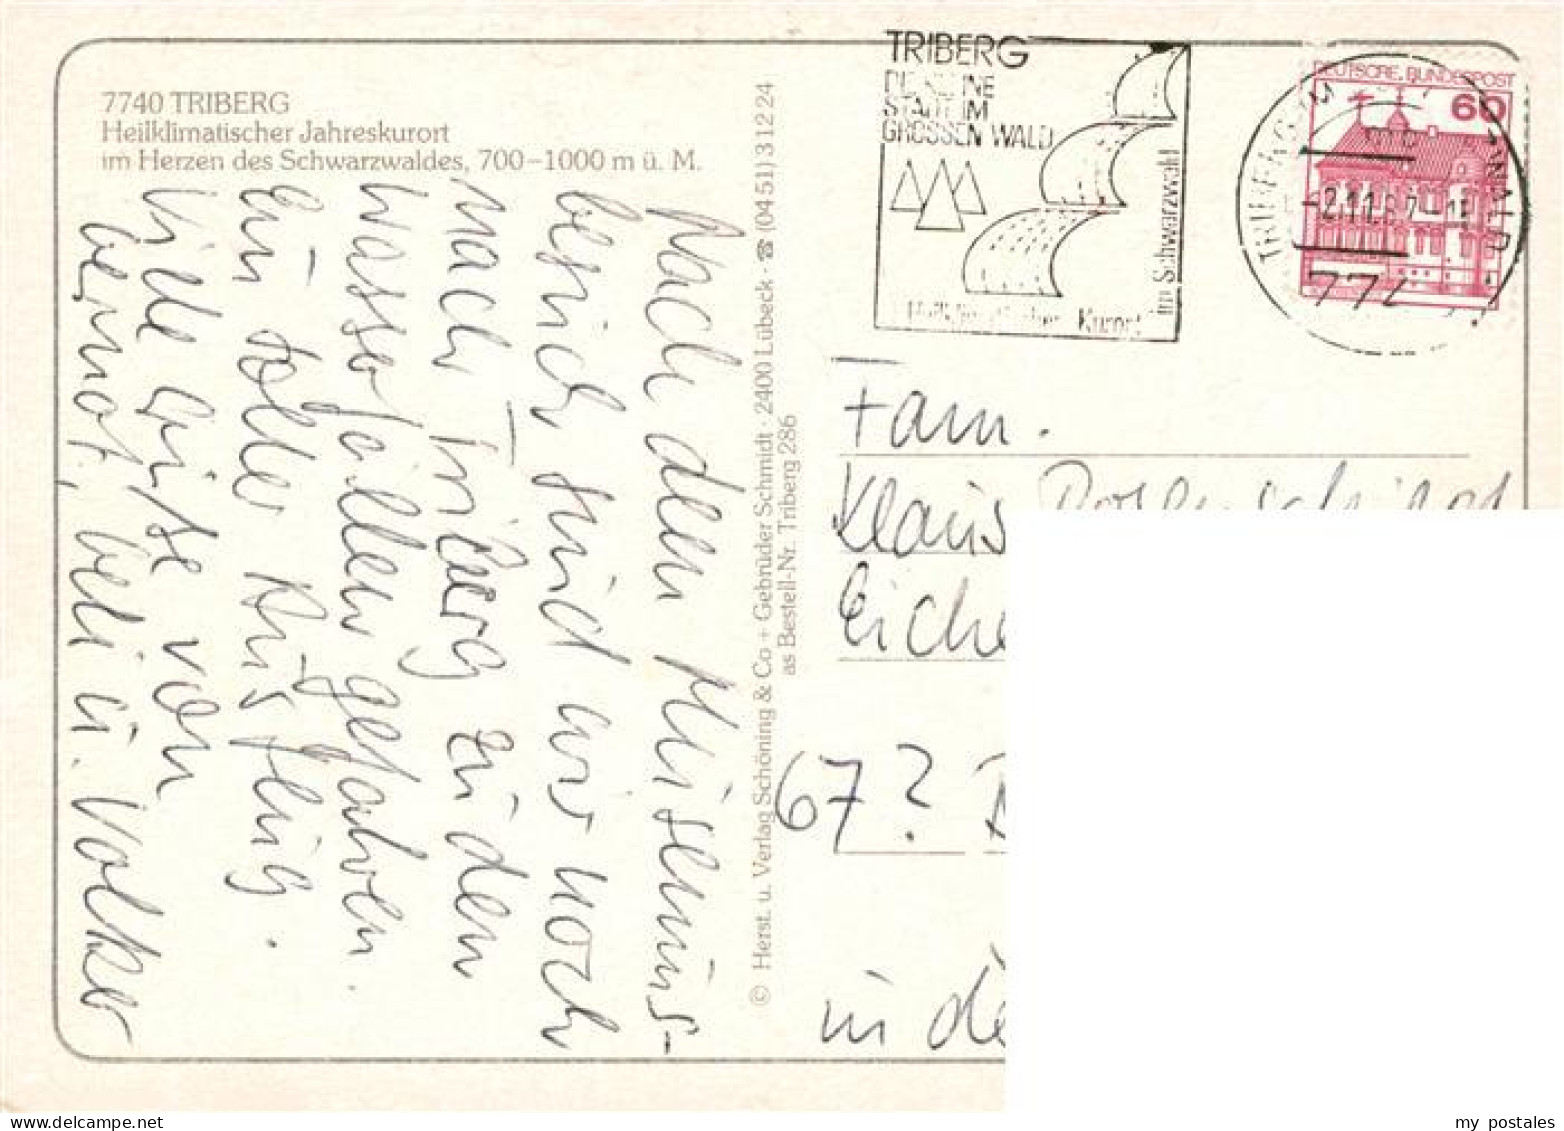 7740 TRIBERG
Heilklimatischer Jahreskurort
im Herzen des Schwarzwaldes, 700–1000 m ü. M.
Nach dem Museums-
besuch sind wir noch
nach Triberg zu den
Wasserfällen gefahren.
Ein toller Ausflug.
Viele Grüße von
Bernot, Geli u. Volker
© Herst. u. Verlag Schöning & Co + Gebrüder Schmidt · 2400 Lübeck · ☎ (04 51) 3 12 24
as Bestell-Nr. Triberg 286
TRIBERG
DIE KLEINE
STADT IM
GROSSEN WALD
Heilklimatischer Kurort
im Schwarzwald
DEUTSCHE BUNDESPOST
60
TRIBERG IM
WALD
-2.11.87
774
Fam.
Klaus
Eiche
67?
in de
my postales